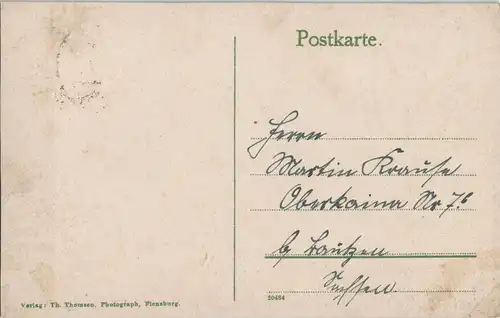 Postkarte.
Herrn
Martin Krause
Oberkaina Nr 7b
b/ Bautzen
Sachsen.
Verlag: Th. Thomsen, Photograph, Flensburg.
20484